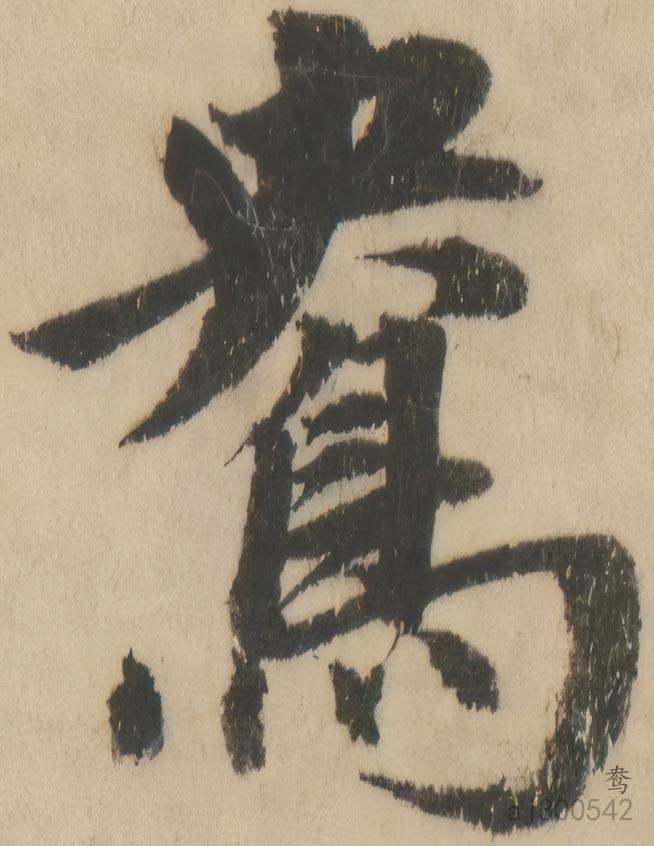 鴦
鸯
aj300542